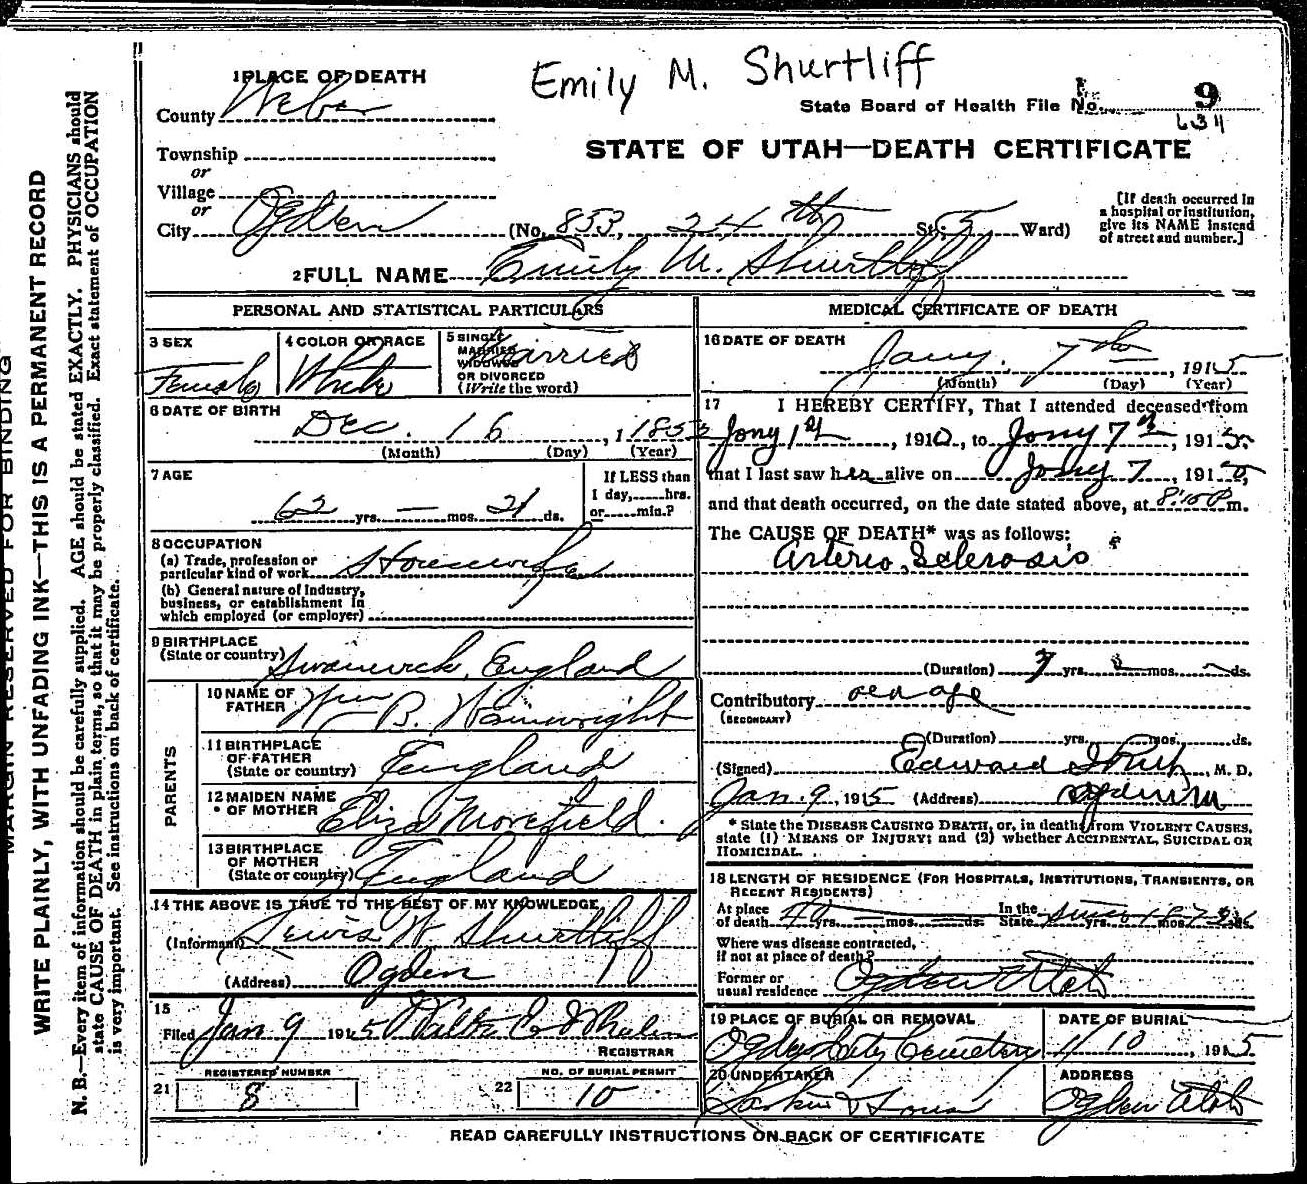 Emily M. Shurtliff
1 PLACE OF DEATH
County Weber
State Board of Health File No. 9
634
Township
or
Village
or
City Ogden (No. 853, 24th St; 5 Ward)
STATE OF UTAH—DEATH CERTIFICATE
[If death occurred in
a hospital or institution,
give its NAME instead
of street and number.]
2 FULL NAME Emily M. Shurtliff
PERSONAL AND STATISTICAL PARTICULARS
3 SEX
Female
4 COLOR OR RACE
White
5 SINGLE
MARRIED
WIDOWED
OR DIVORCED
(Write the word)
Married
6 DATE OF BIRTH
Dec. 16, 1853
(Month) (Day) (Year)
7 AGE
62 yrs. — mos. 21 ds.
If LESS than
1 day, hrs.
or min.?
8 OCCUPATION
(a) Trade, profession or
particular kind of work Housewife
(b) General nature of Industry,
business, or establishment in
which employed (or employer)
9 BIRTHPLACE
(State or country) Swanwick, England
PARENTS
10 NAME OF
FATHER Wm B. Wainwright
11 BIRTHPLACE
OF FATHER
(State or country) England
12 MAIDEN NAME
OF MOTHER Eliza Morefield.
13 BIRTHPLACE
OF MOTHER
(State or country) England
14 THE ABOVE IS TRUE TO THE BEST OF MY KNOWLEDGE,
(Informant) Lewis W. Shurtliff
(Address) Ogden
15
Filed Jan 9 1915 Walter E. Whalen
REGISTRAR
REGISTERED NUMBER
21 8
NO. OF BURIAL PERMIT
22 10
MEDICAL CERTIFICATE OF DEATH
16 DATE OF DEATH
Jany. 7th, 1915
(Month) (Day) (Year)
17 I HEREBY CERTIFY, That I attended deceased from
Jany 1st, 1910, to Jany 7th, 1915.
that I last saw her alive on Jany 7, 1915,
and that death occurred, on the date stated above, at 8:10 P m.
The CAUSE OF DEATH* was as follows:
Arterio Sclerosis
(Duration) yrs. mos. ds.
Contributory old age
(SECONDARY)
(Duration) yrs. mos. ds.
(Signed) Edward I Rich, M. D.
Jan. 9, 1915 (Address) Ogden
* State the DISEASE CAUSING DEATH, or, in deaths from VIOLENT CAUSES,
state (1) MEANS OF INJURY; and (2) whether ACCIDENTAL, SUICIDAL OR
HOMICIDAL.
18 LENGTH OF RESIDENCE (FOR HOSPITALS, INSTITUTIONS, TRANSIENTS, OR
RECENT RESIDENTS)
At place
of death yrs. mos. ds.
In the
State since yrs. mos. ds.
Where was disease contracted,
if not at place of death?
Former or
usual residence Ogden Utah
19 PLACE OF BURIAL OR REMOVAL
Ogden City Cemetery
DATE OF BURIAL
1/10, 1915.
20 UNDERTAKER
Larkin & Sons
ADDRESS
Ogden Utah
READ CAREFULLY INSTRUCTIONS ON BACK OF CERTIFICATE
MARGIN RESERVED FOR BINDING
WRITE PLAINLY, WITH UNFADING INK—THIS IS A PERMANENT RECORD
N. B.—Every item of information should be carefully supplied. AGE should be stated EXACTLY. PHYSICIANS should
state CAUSE OF DEATH in plain terms, so that it may be properly classified. Exact statement of OCCUPATION
is very important. See instructions on back of certificate.